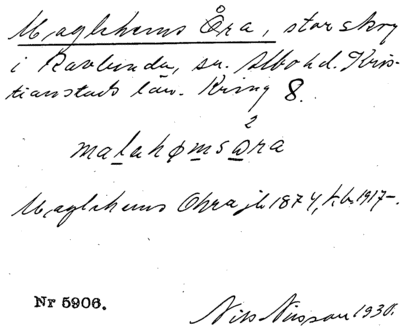 Maglehems Åra, stor skog
i Ravlunda, sn. Albo hd. Kris-
tianstads län. Kring 8.
2
malahøms ɑra
Maglehems Ohra jb 1874, kb 1917-.
Nr 5906.
Nils Nilsson 1930.